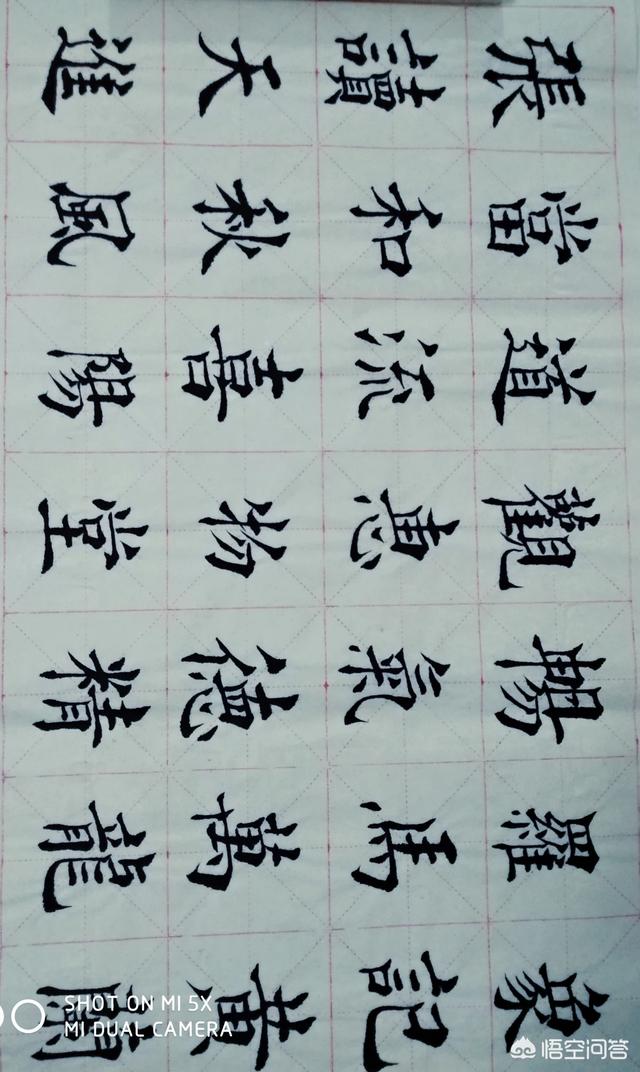 象記黃蘭
羅馬萬龍
暢氣德精
觀惠物堂
道流喜陽
當和秋風
張讀天進
SHOT ON MI 5X
MI DUAL CAMERA
悟空问答